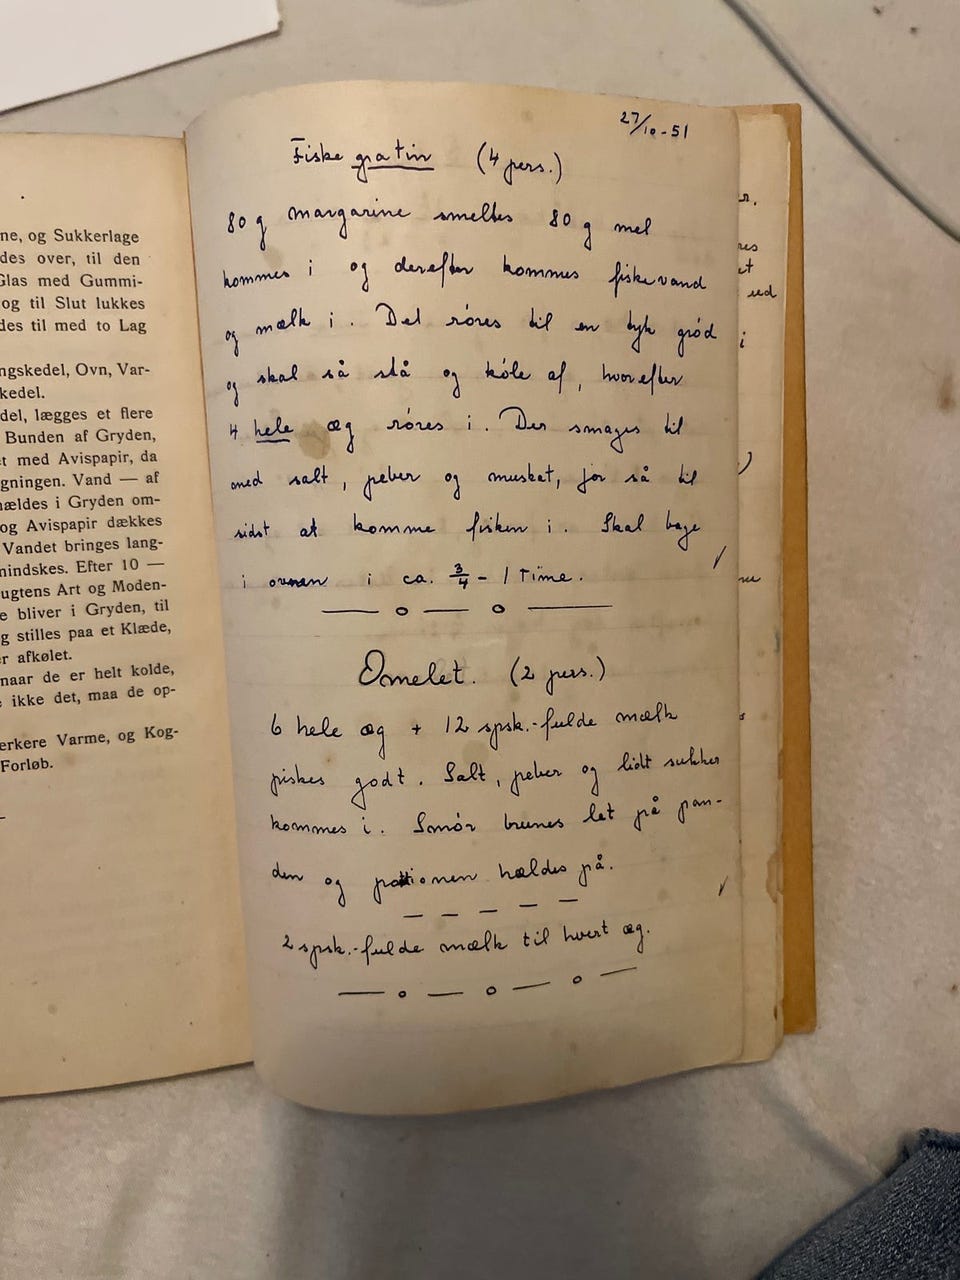 ne, og Sukkerlage
des over, til den
Glas med Gummi-
og til Slut lukkes
des til med to Lag
ngskedel, Ovn, Var-
kedel.
del, lægges et flere
Bunden af Gryden,
t med Avispapir, da
gningen. Vand — af
hældes i Gryden om-
og Avispapir dækkes
Vandet bringes lang-
mindskes. Efter 10 —
ugtens Art og Moden-
e bliver i Gryden, til
g stilles paa et Klæde,
r afkølet.
naar de er helt kolde,
ikke det, maa de op-
erkere Varme, og Kog-
Forløb.
27/10-51
Fiskegratin (4 pers.)
80 g margarine smeltes 80 g mel
kommes i og derefter kommes fiskevand
og mælk i. Det røres til en tyk grød
og skal så stå og køle af, hvorefter
4 hele æg røres i. Der smages til
med salt, peber og muskat, for så til
sidst at komme fisken i. Skal bage
i ovnen i ca. 3/4 - 1 Time.
Omelet. (2 pers.)
6 hele æg + 12 spsk.-fulde mælk
piskes godt. Salt, peber og lidt sukker
kommes i. Smør brunes let på pan-
den og portionen hældes på.
2 spsk.-fulde mælk til hvert æg.